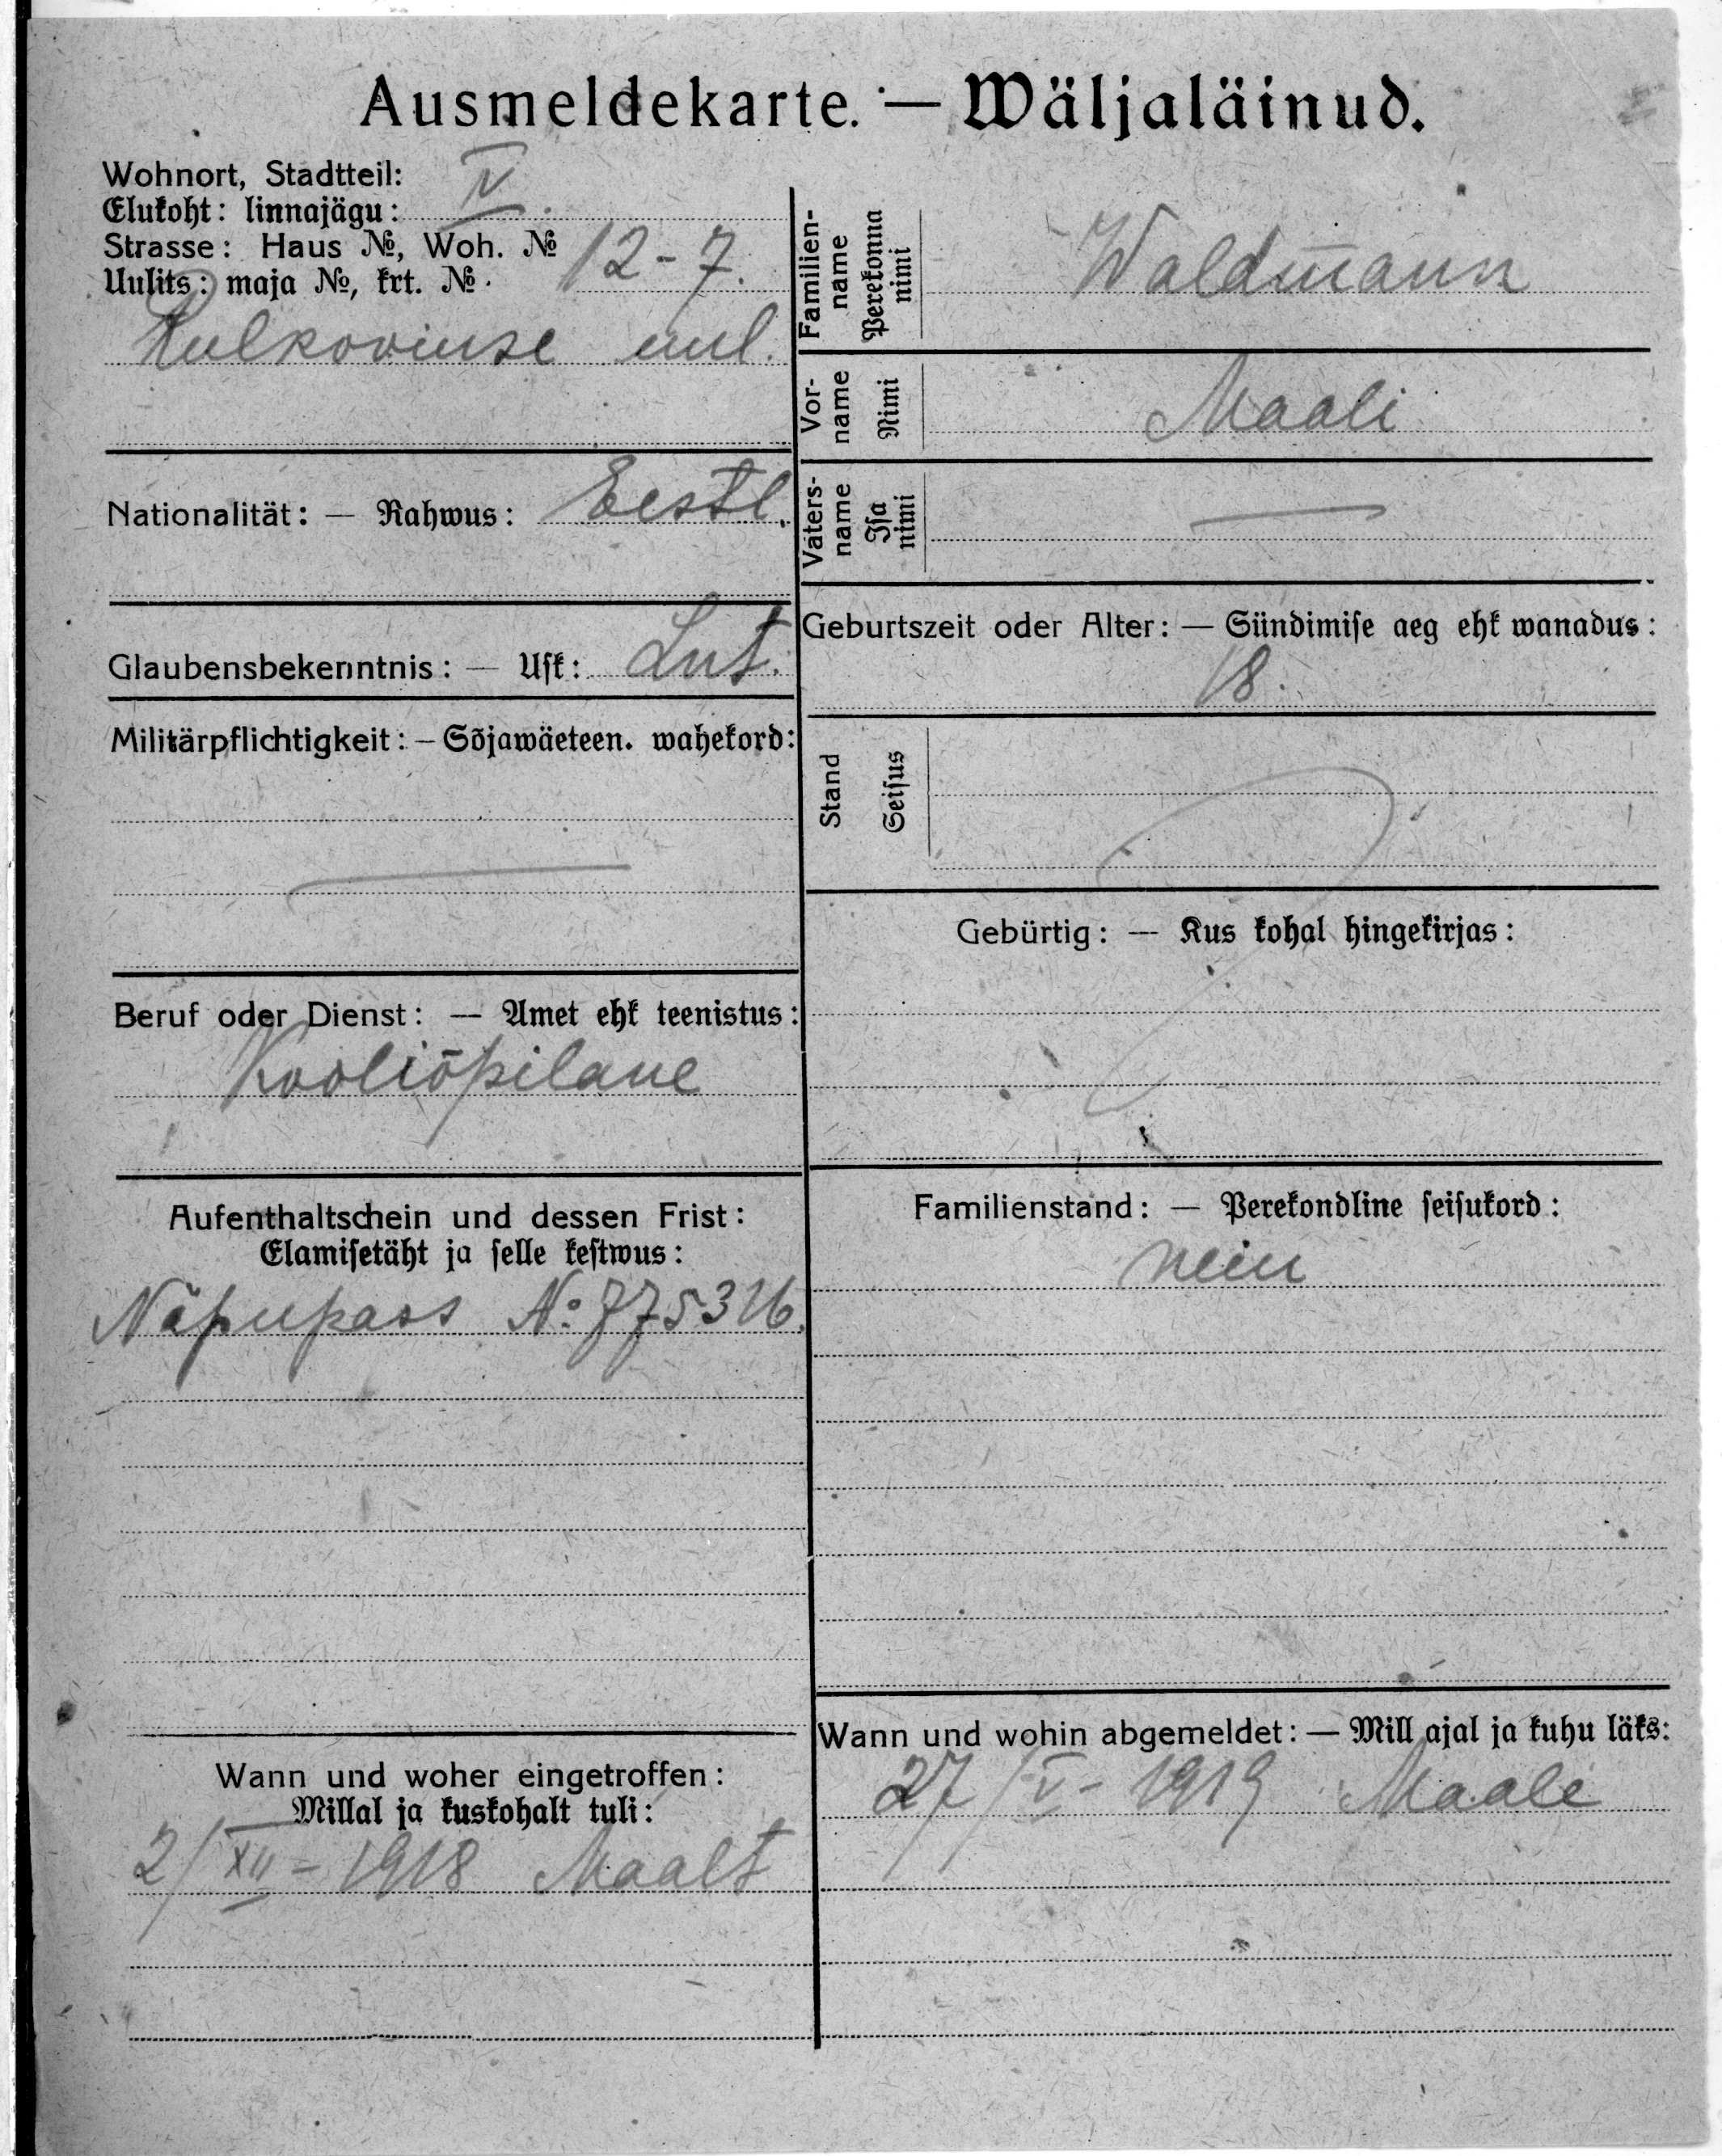 Ausmeldekarte. — Wäljaläinud.
Wohnort, Stadtteil:
Elukoht: linnajägu: IV.
Strasse: Haus №, Woh. №
Uulits: maja №, krt. №. 12-7.
uul.
Nationalität: — Rahwus: Eestl.
Glaubensbekenntnis: — Usk: Lut.
Militärpflichtigkeit: — Sõjawäeteen. wahekord:
Beruf oder Dienst: — Amet ehk teenistus:
Kooliõpilane
Aufenthaltschein und dessen Frist:
Elamisetäht ja selle kestwus:
Näpupass №
Wann und woher eingetroffen:
Millal ja kuskohalt tuli:
2/XII-1918 Maalt
Familien-
name
Perekonna
nimi
Waldmann
Vor-
name
Nimi
Maali
Vaters-
name
Isa
nimi
—
Geburtszeit oder Alter: — Sündimise aeg ehk wanadus:
18.
Stand
Seisus
Gebürtig: — Kus kohal hingekirjas:
Familienstand: — Perekondline seisukord:
neiu
Wann und wohin abgemeldet: — Mill ajal ja kuhu läks:
27/V-1919 Maale